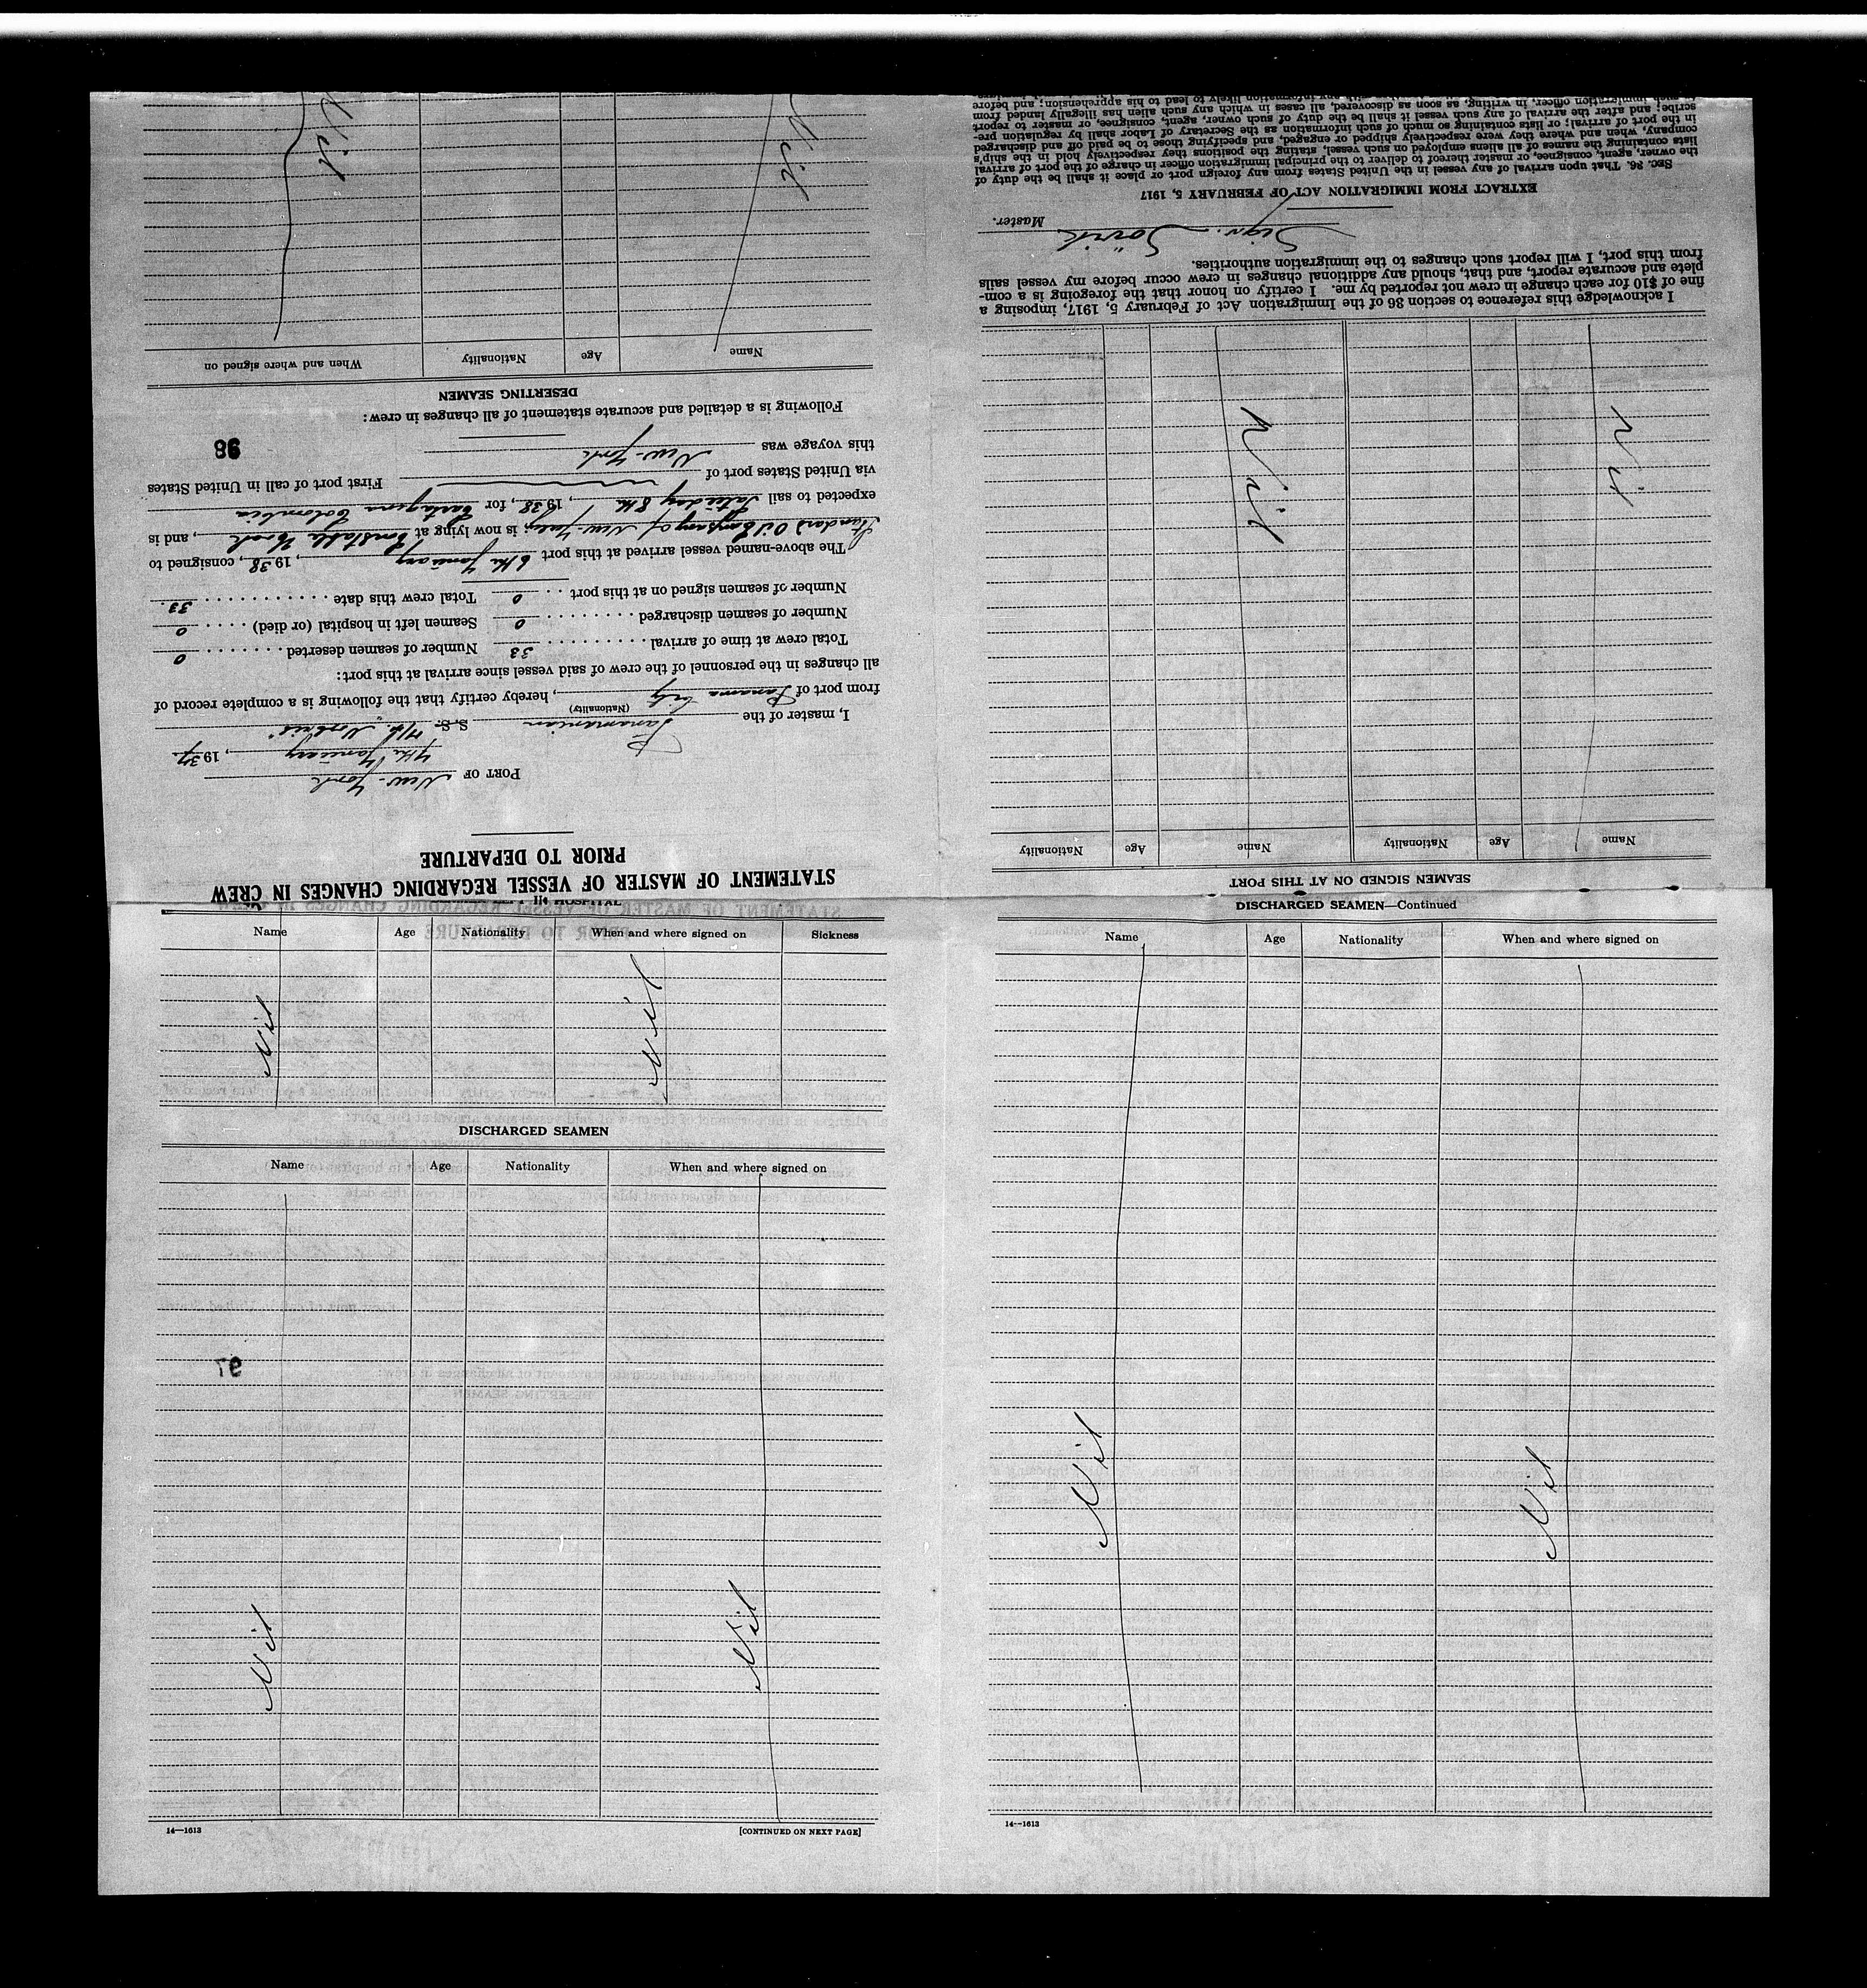 STATEMENT OF MASTER OF VESSEL REGARDING CHANGES IN CREW
PRIOR TO DEPARTURE
PORT OF New-York
7th January, 1937
I, master of the Panamenian S.S. M/S
(Nationality)
from port of Panama City, hereby certify that the following is a complete record of
all changes in the personnel of the crew of said vessel since arrival at this port:
Total crew at time of arrival . . . . . . . . . . 33 Number of seamen deserted . . . . . . . . 0
Number of seamen discharged . . . . . . . . 0 Seamen left in hospital (or died) . . . . . 0
Number of seamen signed on at this port . . . 0 Total crew this date . . . . . . . . . . . . 33.
The above-named vessel arrived at this port 6th January, 1938, consigned to
Standard Oil Company of New-Jersey; is now lying at Constable Hook, and is
expected to sail Saturday 8th, 1938, for Cartagena Colombia
via United States port of First port of call in United States
this voyage was New-York
98
Following is a detailed and accurate statement of all changes in crew:
DESERTING SEAMEN
Name Age Nationality When and where signed on
Nil Nil
SEAMEN SIGNED ON AT THIS PORT
Name Age Nationality Name Age Nationality
Nil Nil
I acknowledge this reference to section 36 of the Immigration Act of February 5, 1917, imposing a
fine of $10 for each change in crew not reported by me. I certify on honor that the foregoing is a com-
plete and accurate report, and that, should any additional changes in crew occur before my vessel sails
from this port, I will report such changes to the immigration authorities.
Sign. Sövik Master.
EXTRACT FROM IMMIGRATION ACT OF FEBRUARY 5, 1917
SEC. 36. That upon arrival of any vessel in the United States from any foreign port or place it shall be the duty of
the owner, agent, consignee, or master thereof to deliver to the principal immigration officer in charge of the port of arrival
lists containing the names of all aliens employed on such vessel, stating the positions they respectively hold in the ship's
company, when and where they were respectively shipped or engaged, and specifying those to be paid off and discharged
in the port of arrival; or lists containing so much of such information as the Secretary of Labor shall by regulation pre-
scribe; and after the arrival of any such vessel it shall be the duty of such owner, agent, consignee, or master to report
to such immigration officer, in writing, as soon as discovered, all cases in which any such alien has illegally landed from
information likely to lead to his apprehension; and before
IN HOSPITAL
Name Age Nationality When and where signed on Sickness
Nil Nil
DISCHARGED SEAMEN
Name Age Nationality When and where signed on
Nil Nil
14—1613 [CONTINUED ON NEXT PAGE]
DISCHARGED SEAMEN—Continued
Name Age Nationality When and where signed on
Nil Nil
14—1613